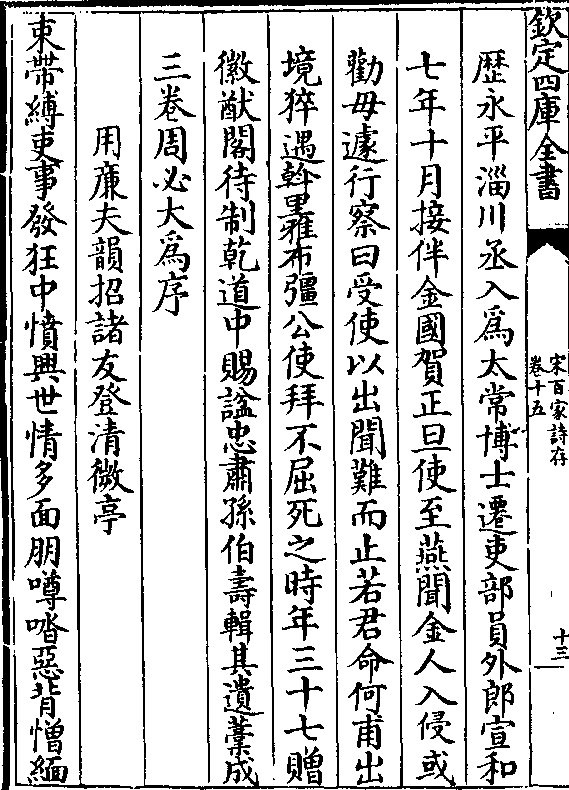 欽定四庫全書
宋百家詩存
卷十五
十三
歴永平淄川丞入為太常博士遷吏部員外郎宣和
七年十月接伴金國賀正旦使至燕聞金人入侵或
勸毋遽行察曰受使以出聞難而止若君命何甫出
境猝遇斡里雅布彊公使拜不屈死之時年三十七贈
徽猷閣待制乾道中賜諡忠肅孫伯壽輯其遺藁成
三卷周必大為序
用廉夫韻招諸友登清微亭
束帶縛吏事發狂中憤興世情多面朋噂喒惡背憎緬